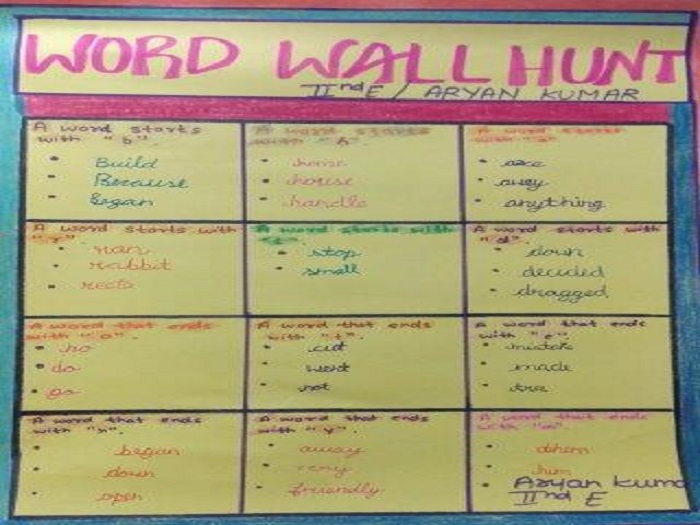 WORD WALL HUNT
IInd E / ARYAN KUMAR
A word starts
with "b".
Build
Because
began
A word starts
with "h".
home
house
handle
A word starts
with "a"
are
away
anything
A word starts with
"r"
ran
rabbit
A word starts with
"s"
stop
small
A word starts with
"d".
down
decided
dragged
A word that ends
with "o".
do
go
A word that ends
with "t".
went
not
A word that ends
with "e".
made
A word that ends
with "n".
began
down
open
A word that ends
with "y".
away
very
friendly
A word that ends
with "m".
them
him
Aryan Kuma
IInd E